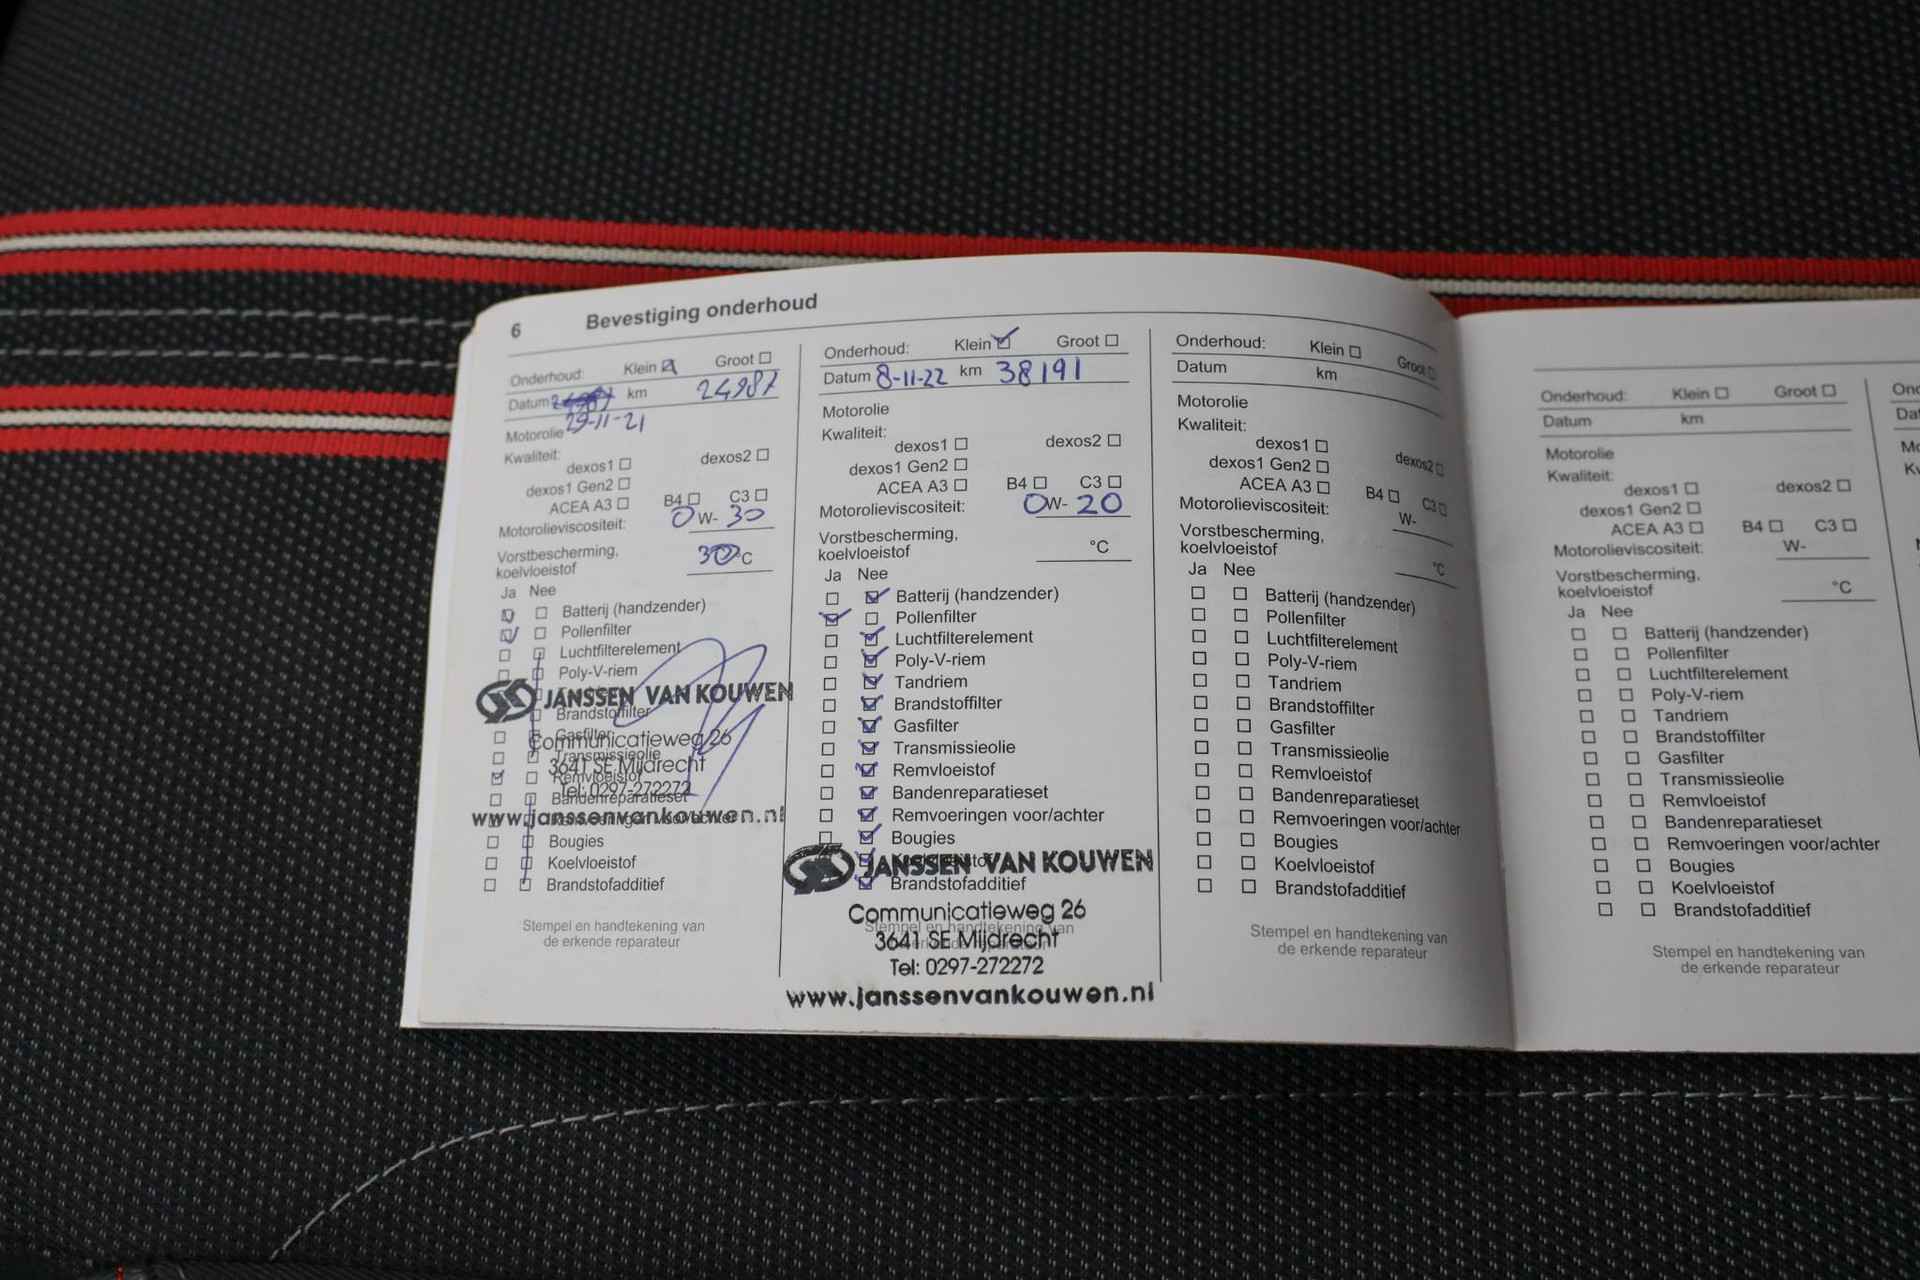 6 Bevestiging onderhoud
Onderhoud: Klein Groot
Datum km 24987
29-11-21
Motorolie
Kwaliteit:
dexos1 dexos2
dexos1 Gen2
ACEA A3 B4 C3
Motorolieviscositeit: 0 W- 30
Vorstbescherming,
koelvloeistof 30 °C
Ja Nee
Batterij (handzender)
Pollenfilter
Luchtfilterelement
Poly-V-riem
JANSSEN VAN KOUWEN
Brandstoffilter
Gasfilter
Communicatieweg 26
Transmissieolie
3641 SE Mijdrecht
Remvloeistof
Tel: 0297-272272
Bandenreparatieset
www.janssenvankouwen.nl
Bougies
Koelvloeistof
Brandstofadditief
Stempel en handtekening van
de erkende reparateur
Onderhoud: Klein Groot
Datum 8-11-22 km 38191
Motorolie
Kwaliteit:
dexos1 dexos2
dexos1 Gen2
ACEA A3 B4 C3
Motorolieviscositeit: 0W- 20
Vorstbescherming,
koelvloeistof °C
Ja Nee
Batterij (handzender)
Pollenfilter
Luchtfilterelement
Poly-V-riem
Tandriem
Brandstoffilter
Gasfilter
Transmissieolie
Remvloeistof
Bandenreparatieset
Remvoeringen voor/achter
Bougies
JANSSEN VAN KOUWEN
Brandstofadditief
Communicatieweg 26
Stempel en handtekening van
3641 SE Mijdrecht
Tel: 0297-272272
www.janssenvankouwen.nl
Onderhoud: Klein Groot
Datum km
Motorolie
Kwaliteit:
dexos1 dexos2
dexos1 Gen2
ACEA A3 B4 C3
Motorolieviscositeit: W-
Vorstbescherming,
koelvloeistof °C
Ja Nee
Batterij (handzender)
Pollenfilter
Luchtfilterelement
Poly-V-riem
Tandriem
Brandstoffilter
Gasfilter
Transmissieolie
Remvloeistof
Bandenreparatieset
Remvoeringen voor/achter
Bougies
Koelvloeistof
Brandstofadditief
Stempel en handtekening van
de erkende reparateur
Onderhoud: Klein Groot
Datum km
Motorolie
Kwaliteit:
dexos1 dexos2
dexos1 Gen2
ACEA A3 B4 C3
Motorolieviscositeit: W-
Vorstbescherming,
koelvloeistof °C
Ja Nee
Batterij (handzender)
Pollenfilter
Luchtfilterelement
Poly-V-riem
Tandriem
Brandstoffilter
Gasfilter
Transmissieolie
Remvloeistof
Bandenreparatieset
Remvoeringen voor/achter
Bougies
Koelvloeistof
Brandstofadditief
Stempel en handtekening van
de erkende reparateur